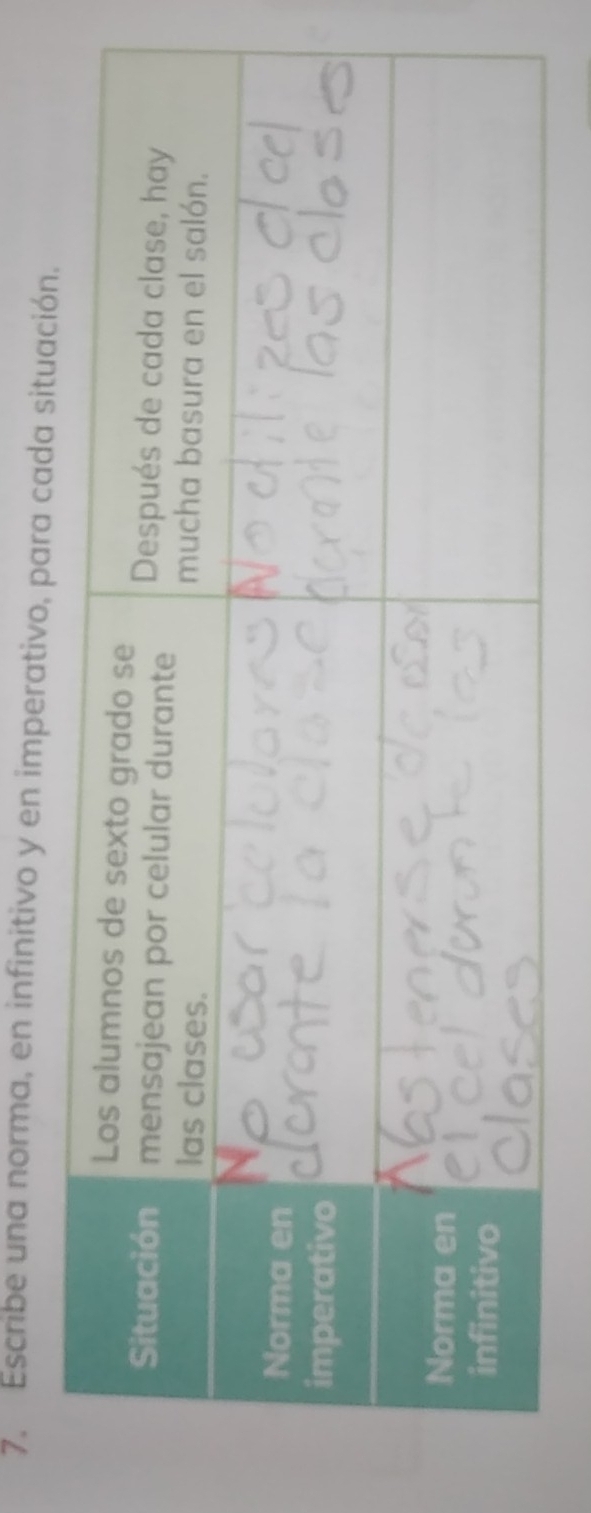 7. Escribe una norma, en infinitivo y en imperativo, para cada situación.
Situación
Los alumnos de sexto grado se
mensajean por celular durante
las clases.
Después de cada clase, hay
mucha basura en el salón.
Norma en
imperativo
No usar celulares
durante la clase
No utilizas el cel
durante las clases
Norma en
infinitivo
Abstenerse de usar
el cel durante las
clases